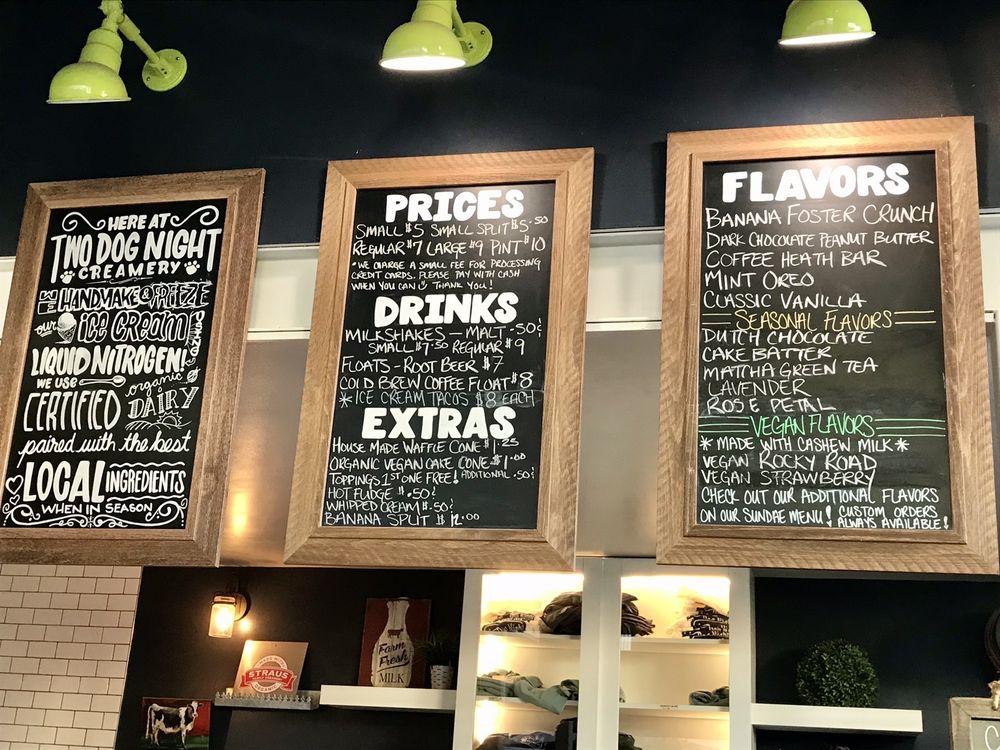 HERE AT
TWO DOG NIGHT
CREAMERY
WE HANDMAKE & FREEZE
our ICE CREAM
USING
LIQUID NITROGEN!
WE USE
CERTIFIED
organic
DAIRY
paired with the best
LOCAL INGREDIENTS
WHEN IN SEASON
PRICES
SMALL $5 SMALL SPLIT $5.50
REGULAR $7 LARGE $9 PINT $10
*WE CHARGE A SMALL FEE FOR PROCESSING
CREDIT CARDS. PLEASE PAY WITH CASH
WHEN YOU CAN THANK YOU!
DRINKS
MILKSHAKES — MALT .50¢
SMALL $7.50 REGULAR $9
FLOATS - ROOT BEER $7
COLD BREW COFFEE FLOAT $8
*ICE CREAM TACOS $8 EACH
EXTRAS
HOUSE MADE WAFFLE CONE $1.25
ORGANIC VEGAN CAKE CONE $1.00
TOPPINGS 1ST ONE FREE! ADDITIONAL .50¢
HOT FUDGE $.50¢
WHIPPED CREAM $.50¢
BANANA SPLIT $12.00
FLAVORS
BANANA FOSTER CRUNCH
DARK CHOCOLATE PEANUT BUTTER
COFFEE HEATH BAR
MINT OREO
CLASSIC VANILLA
SEASONAL FLAVORS
DUTCH CHOCOLATE
CAKE BATTER
MATCHA GREEN TEA
LAVENDER
ROSE PETAL
VEGAN FLAVORS
*MADE WITH CASHEW MILK*
VEGAN ROCKY ROAD
VEGAN STRAWBERRY
CHECK OUT OUR ADDITIONAL FLAVORS
ON OUR SUNDAE MENU! CUSTOM ORDERS
ALWAYS AVAILABLE!
STRAUS
ORGANIC
Farm
Fresh
MILK